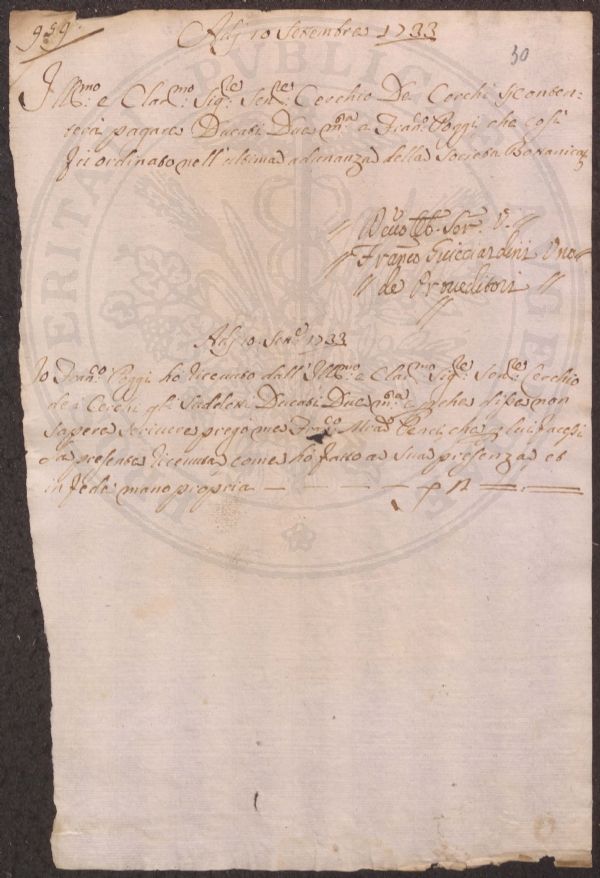 959.
Adj 10 Settembre 1733
30
Ill.mo e Clar.mo Sig.re Sen.re Cerchio De Cerchi si conten=
terà pagare Ducati Due m.ta a Fran.co Poggi che così
fu ordinato nell'ultima adunanza della Società Botanica
// Deuo Obb. Ser. V. //
// Franco Guicciardini Uno //
// de Proueditori //
//
Adj 10 Sett.e 1733
Io Fran.co Poggi ho riceuuto dall'Ill.mo e Clar.mo Sig.re Sen.re Cerchio
de i Cerchi gli Suddetti Ducati Due m.ta e che disse non
sapere scriuere pregò me Fran.co che p lui facessi
la presente riceuuta come hò fatto a Sua presenza, et
in fede mano propria